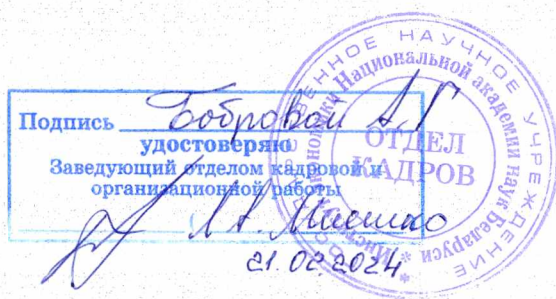 Подпись Бобровой А.Г
удостоверяю
Заведующий отделом кадровой и
организационной работы
21.02.2024
НАУЧНОЕ УЧРЕЖДЕНИЕ
Национальной академии наук Беларуси
ОТДЕЛ
КАДРОВ